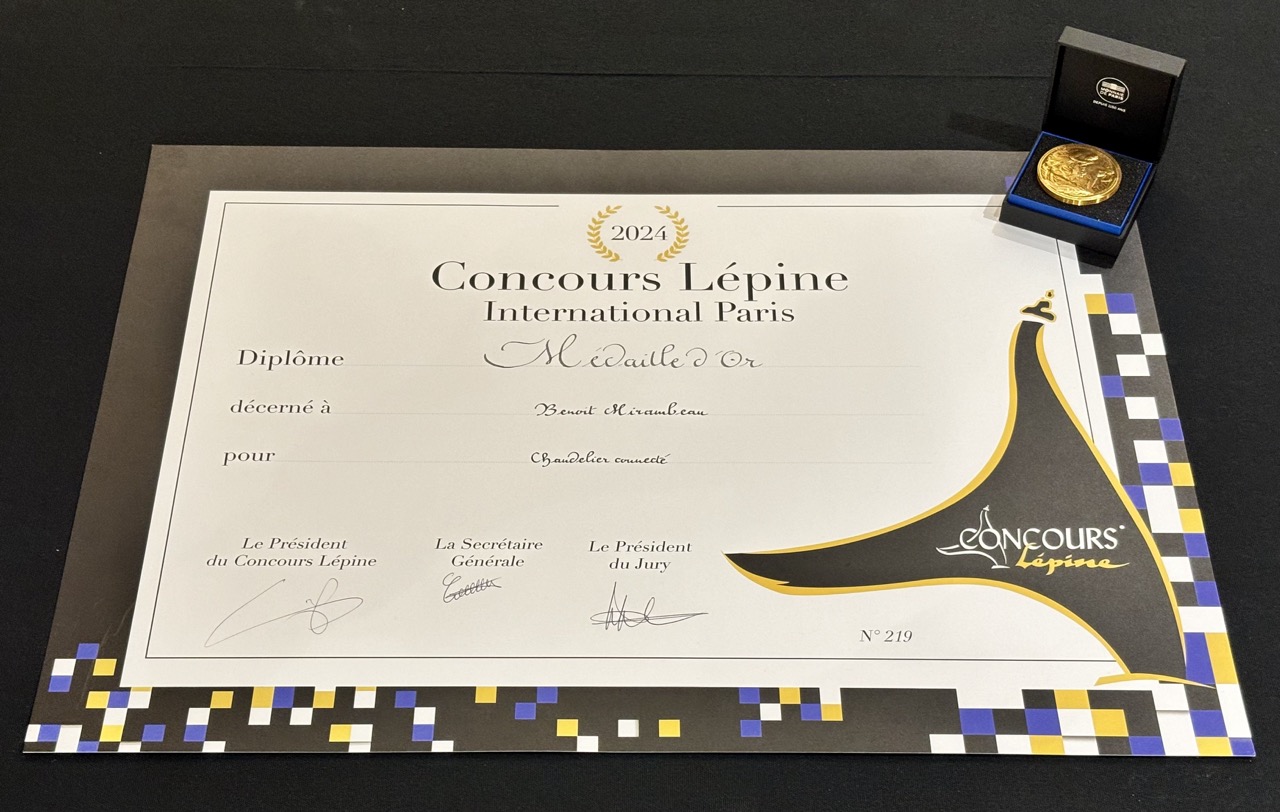 MONNAIE
DE PARIS
2024
Concours Lépine
International Paris
Diplôme Médaille d'Or
décerné à Benoit Mirambeau
pour Chandelier connecté
Le Président
du Concours Lépine
La Secrétaire
Générale
Le Président
du Jury
CONCOURS
Lépine
N° 219